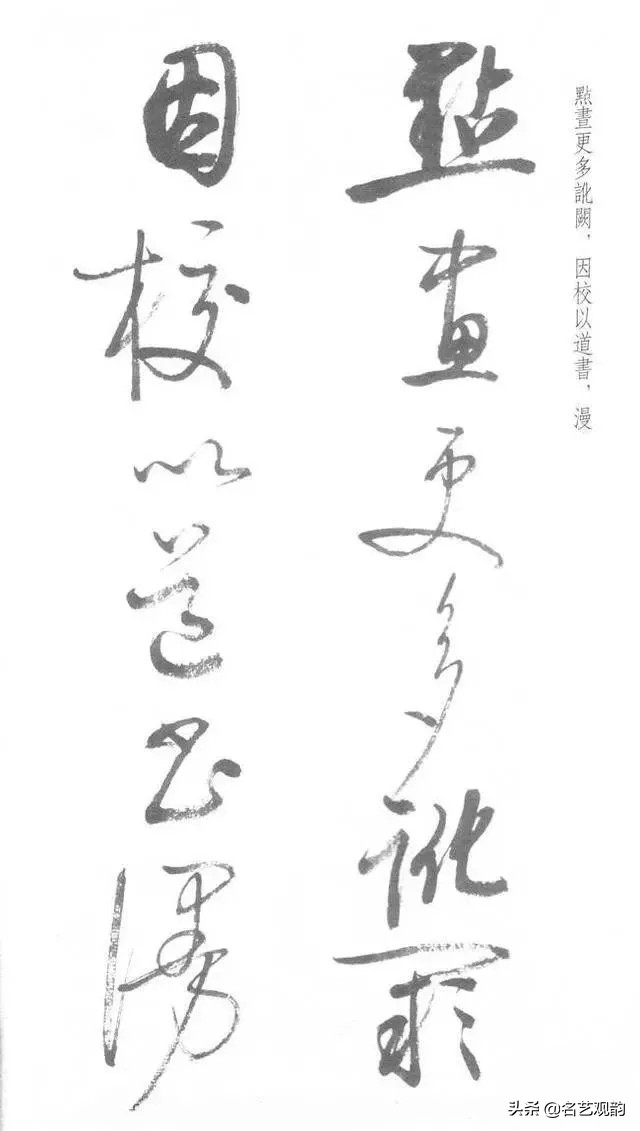 點畫更多訛闕，因校以道書，漫
點畫更多訛闕
因校以道書漫
头条 @名艺观韵